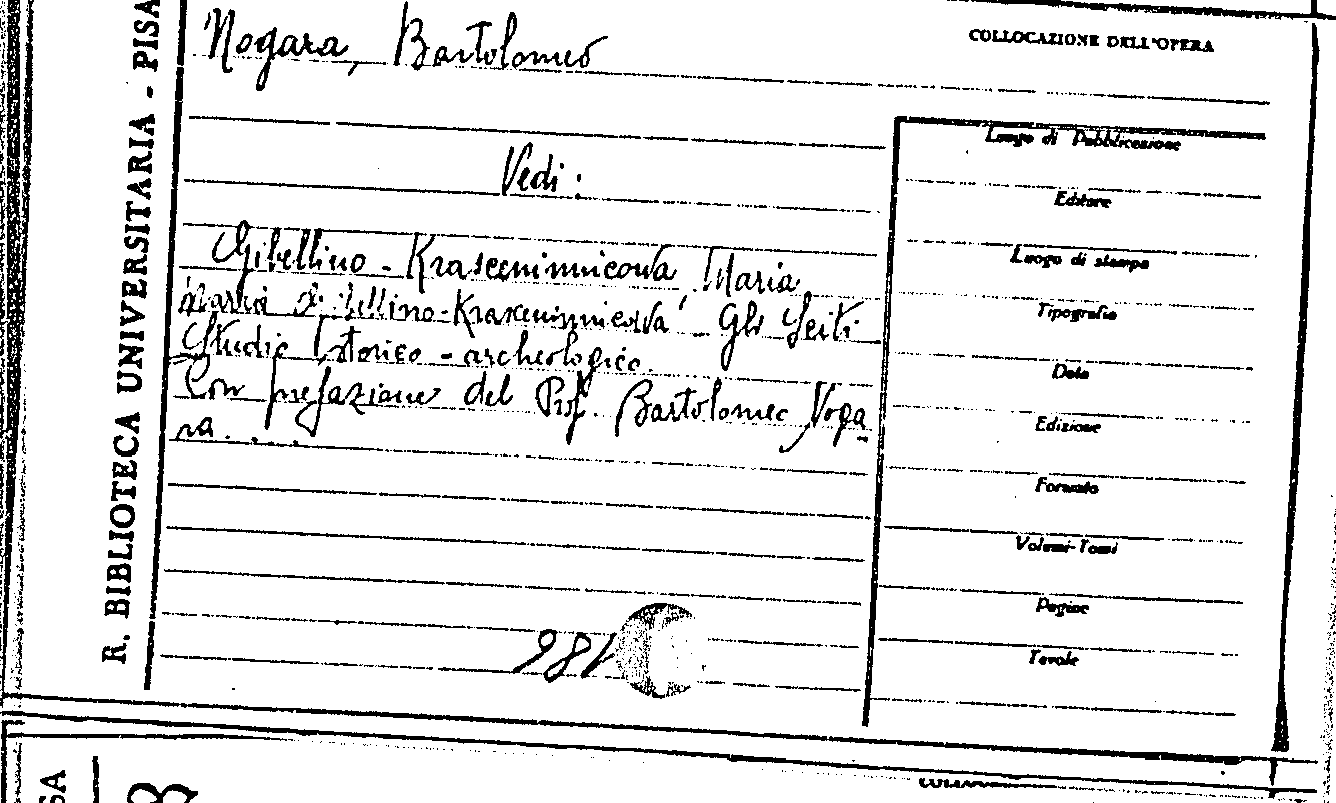 R. BIBLIOTECA UNIVERSITARIA - PISA
Nogara, Bartolomeo
COLLOCAZIONE DELL'OPERA
Vedi:
Gibellino - Krasceninnicowa, Maria
Maria Gibellino-Krasceninnicowa - Gli Sciti
Studio storico - archeologico.
Con prefazione del Prof. Bartolomeo Noga
ra. . . .
Luogo di Pubblicazione
Editore
Luogo di stampa
Tipografia
Data
Edizione
Formato
Volumi-Tomi
Pagine
Tavole